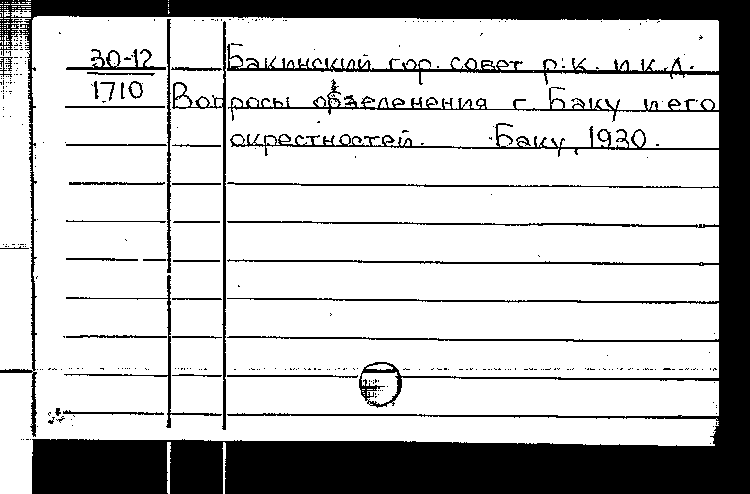 30-12
1710
Бакинский гор. совет р.к. и к.д.
Вопросы обзеленения г. Баку и его
окрестностей. Баку, 1930.